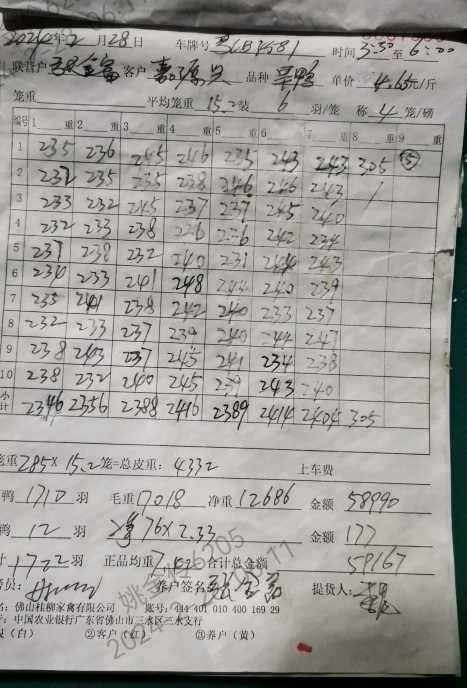 2024年2月28日 车牌号 时间3:30至6:00
联营户 客户 品种 单价4.65元/斤
笼重 平均笼重15.2装6羽/笼 称4笼/磅
编号 1 重 2 重 3 重 4 重 5 重 6 重 7 重 8 重 9 重
1 235 236 245 246 235 243 243 305 5
2 232 235 235 238 246 246 243
3 233 232 245 237 237 245 240
4 232 233 238 236 236 242
5 237 238 232 240 231 244 243
6 234 233 241 248 244 240 239
7 235 241 238 242 240 233 237
8 232 233 237 239 240 244 247
9 238 243 237 245 241 234 238
10 238 232 240 245 239 243 240
小计 2346 2356 2388 2416 2389 2414 2404 305
笼重285×15.2笼=总皮重:4332 上车费
鸭1710羽 毛重17018净重12686 金额58990
鸭12羽 76×2.33 金额177
计1722羽 正品均重 合计总金额59167
养户签名 提货人:
名:佛山桂柳家禽有限公司 账号:444 401 010 400 169 29
行:中国农业银行广东省佛山市三水区三水支行
(白) ②客户(红) ③养户(黄)